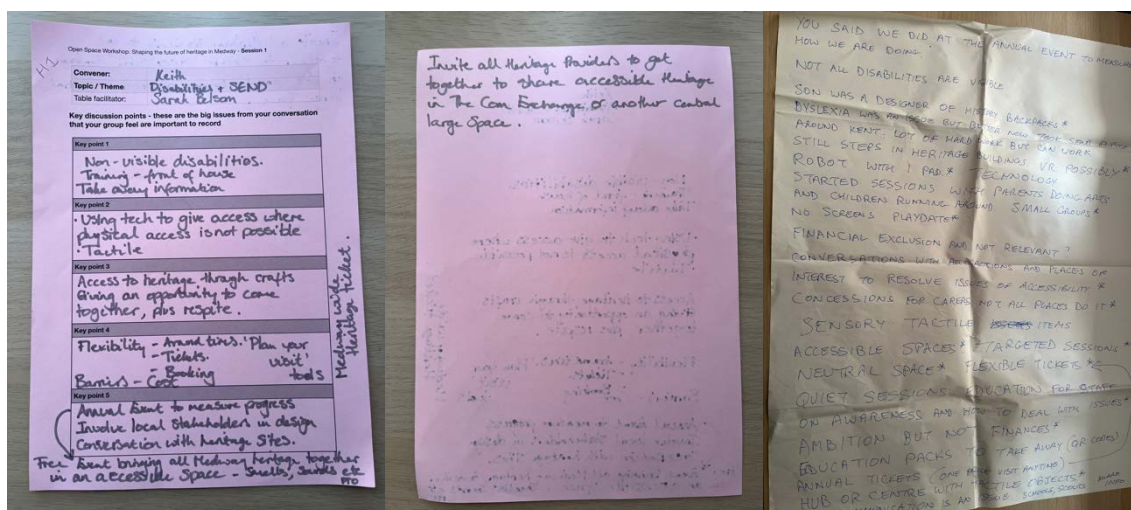 H1
Open Space Workshop: Shaping the future of heritage in Medway - Session 1
Convener: Keith
Topic / Theme Disabilities + SEND
Table facilitator: Sarah Belsom
Key discussion points - these are the big issues from your conversation
that your group feel are important to record
Key point 1
Non-visible disabilities.
Training - front of house
Take away information
Key point 2
• Using tech to give access where
physical access is not possible
• Tactile
Key point 3
Access to heritage through crafts
Giving an opportunity to come
together, plus respite.
Key point 4
Flexibility - Around times. 'Plan your
- Tickets. visit'
- Booking tools
Barriers - Cost
Key point 5
Annual Event to measure progress
Involve local Stakeholders in design
Conversation with heritage Sites.
Free Event bringing all Medway heritage together
in an accessible Space - Smells, Sounds etc
PTO
Medway wide
Heritage ticket.
Invite all Heritage Providers to get
together to share accessible Heritage
in The Corn Exchange or another central
large Space.
YOU SAID WE DID AT THE ANNUAL EVENT TO MEASURE
HOW WE ARE DOING
NOT ALL DISABILITIES ARE VISIBLE
SON WAS A DESIGNER OF HISTORY BACKPACKS*
DYSLEXIA WAS AN ISSUE BUT BETTER NOW TOOK
AROUND KENT. LOT OF HARD WORK BUT CAN WORK
STILL STEPS IN HERITAGE BUILDINGS VR POSSIBLY*
ROBOT WITH I PAD.* TECHNOLOGY
STARTED SESSIONS WITH PARENTS DOING ARTS
AND CHILDREN RUNNING AROUND SMALL GROUPS*
NO SCREENS PLAYDATE*
FINANCIAL EXCLUSION AND NOT RELEVANT?
CONVERSATIONS WITH ATTRACTIONS AND PLACES OF
INTEREST TO RESOLVE ISSUES OF ACCESSIBILITY *
CONCESSIONS FOR CARERS NOT ALL PLACES DO IT*
SENSORY TACTILE ITEMS
ACCESSIBLE SPACES* TARGETED SESSIONS*
NEUTRAL SPACE* FLEXIBLE TICKETS*
QUIET SESSIONS EDUCATION FOR
ON AWARENESS AND HOW TO DEAL WITH ISSUES*
AMBITION BUT NOT FINANCES*
EDUCATION PACKS TO TAKE AWAY (QR CODES)
ANNUAL TICKETS (ONE VISIT ANYTIME)
HUB OR CENTRE WITH TACTILE OBJECTS*
IS AN ISSUE SCHOOLS, SCOUTS